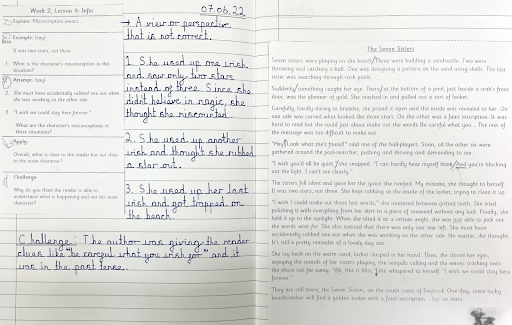 Week 2, Lesson 4: Infer
Explain: Misconception means...
Example: (any)
It was two stars, not three.
1. What is the character's misconception in this situation?
Attempt: (any)
2. She must have accidentally rubbed one out when she was working on the other side
3. "I wish we could stay here forever."
What are the character's misconceptions in these situations?
Apply:
Overall, what is clear to the reader but not clear to the main character?
Challenge:
Why do you think the reader is able to understand what is happening and not the main character?
07.06.22
→ A view or perspective
that is not correct.
1. She used up one wish
and saw only two stars
instead of three. Since she
didn't believe in magic, she
thought she miscounted.
2. She used up another
wish and thought she rubbed
a star out.
3. She used up her last
wish and got trapped on
the beach.
Challenge: The author was giving the reader
clues like "be careful what you wish for" and it
was in the past tense.
The Seven Sisters
Seven sisters were playing on the beach. Three were building a sandcastle. Two were
throwing and catching a ball. One was designing a pattern on the sand using shells. The last
sister was searching through rock pools.
Suddenly something caught her eye. There, at the bottom of a pool, just beside a crab's front
door, was the glimmer of gold. She reached in and pulled out a sort of locket.
Carefully, hardly daring to breathe, she prized it open and the inside was revealed to her. On
one side was carved what looked like three stars. On the other was a faint inscription. It was
hard to read but she could just about make out the words Be careful what you... The rest of
the message was too difficult to make out.
"Hey! Look what she's found!" said one of the ball-players. Soon, all the other six were
gathered around the pool-searcher, pushing and shoving and demanding to see.
"I wish you'd all be quiet," she snapped. "I can hardly hear myself think, and you're blocking
out the light. I can't see clearly."
The sisters fell silent and gave her the space she needed. My mistake, she thought to herself.
It was two stars, not three. She kept rubbing at the inside of the locket, trying to clean it up.
"I wish I could make out these last words," she muttered between gritted teeth. She tried
polishing it with everything from her skirt to a piece of seaweed without any luck. Finally, she
held it up to the sunlight. When she tilted it at a certain angle, she was just able to pick out
the words wish for. She also noticed that there was only one star left. She must have
accidentally rubbed one out when she was working on the other side. No matter, she thought.
It's still a pretty reminder of a lovely day out.
She lay back on the warm sand, locket clasped in her hand. Then, she closed her eyes,
enjoying the sounds of her sisters playing, the seagulls calling and the waves crashing onto
the shore not far away. "Ah, this is bliss," she whispered to herself. "I wish we could stay here
forever."
They are still there, the Seven Sisters, on the south coast of England. One day, some lucky
beachcomber will find a golden locket with a faint inscription... but no stars.